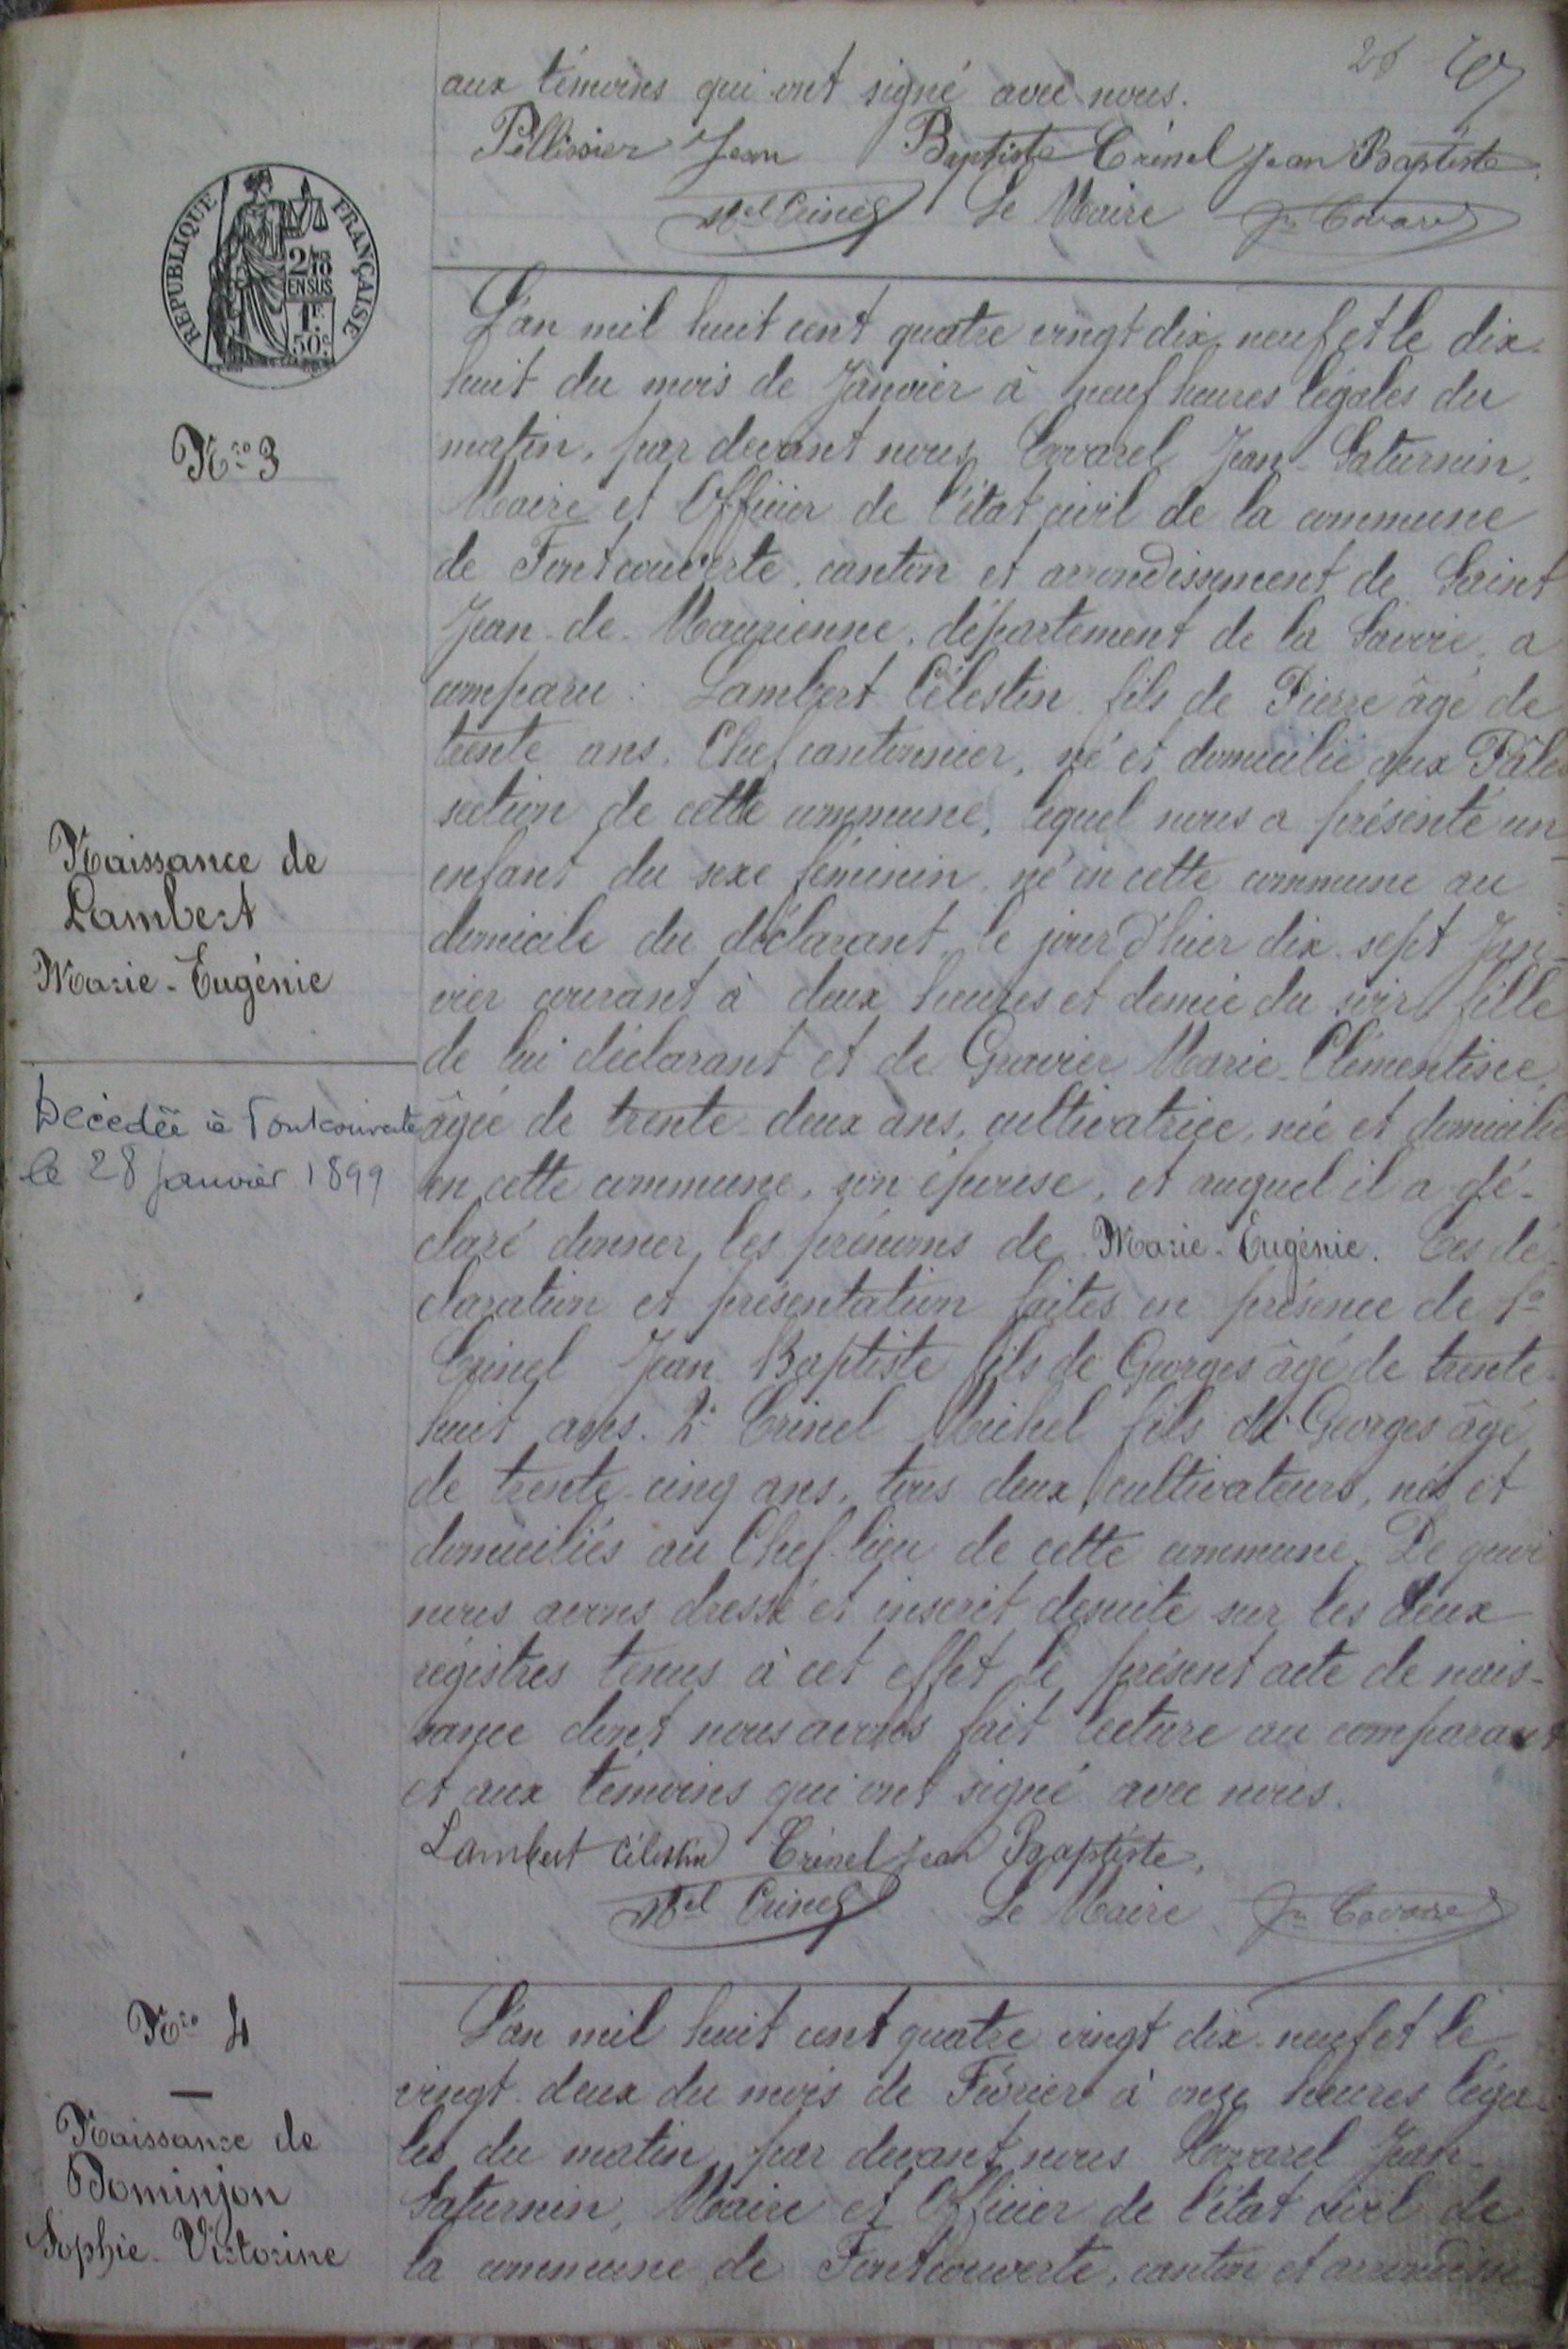 aux témoins qui ont signé avec nous.
Pellissier Jean Baptiste Crinel Jean Baptiste
Mel Crinel Le Maire Jn Covarel
REPUBLIQUE FRANÇAISE
2/10 EN SUS
1F 50c
L'an mil huit cent quatre vingt dix neuf et le dix-
huit du mois de Janvier à neuf heures légales du
N.ro 3
matin, par devant nous Covarel Jean-Saturnin,
Maire et Officier de l'état civil de la commune
de Fontcouverte, canton et arrondissement de Saint
Jean-de-Maurienne, département de la Savoie, a
comparu : Lambert Célestin fils de Pierre âgé de
trente ans, Chef cantonnier, né et domicilié aux
section de cette commune, lequel nous a présenté un
Naissance de
Lambert
Marie-Eugénie
enfant du sexe féminin, né en cette commune au
domicile du déclarant, le jour d'hier dix-sept Jan-
vier courant à deux heures et demie du soir, fille
de lui déclarant et de Gravier Marie-Clémentine,
Décédée à Fontcouverte
le 28 janvier 1899
âgée de trente-deux ans, cultivatrice, née et domiciliée
en cette commune, son épouse, et auquel il a dé-
claré donner les prénoms de Marie-Eugénie. Ces dé-
claration et présentation faites en présence de 1º
Crinel Jean Baptiste fils de Georges âgé de trente-
huit ans. 2º Crinel Michel fils de Georges âgé
de trente-cinq ans, tous deux cultivateurs, nés et
domiciliés au Chef-lieu de cette commune. De quoi
nous avons dressé et inscrit desuite sur les deux
régistres tenus à cet effet le présent acte de nais-
sance dont nous avons fait lecture au comparant
et aux témoins qui ont signé avec nous.
Lambert Célestin Crinel Jean Baptiste.
Mel Crinel Le Maire Jn Covarel
N.ro 4
Naissance de
Dominjon
Sophie-Victorine
L'an mil huit cent quatre vingt dix-neuf et le
vingt-deux du mois de Février à onze heures léga-
les du matin, par devant nous Covarel Jean-
Saturnin, Maire et Officier de l'état civil de
la commune de Fontcouverte, canton et arrondisse-